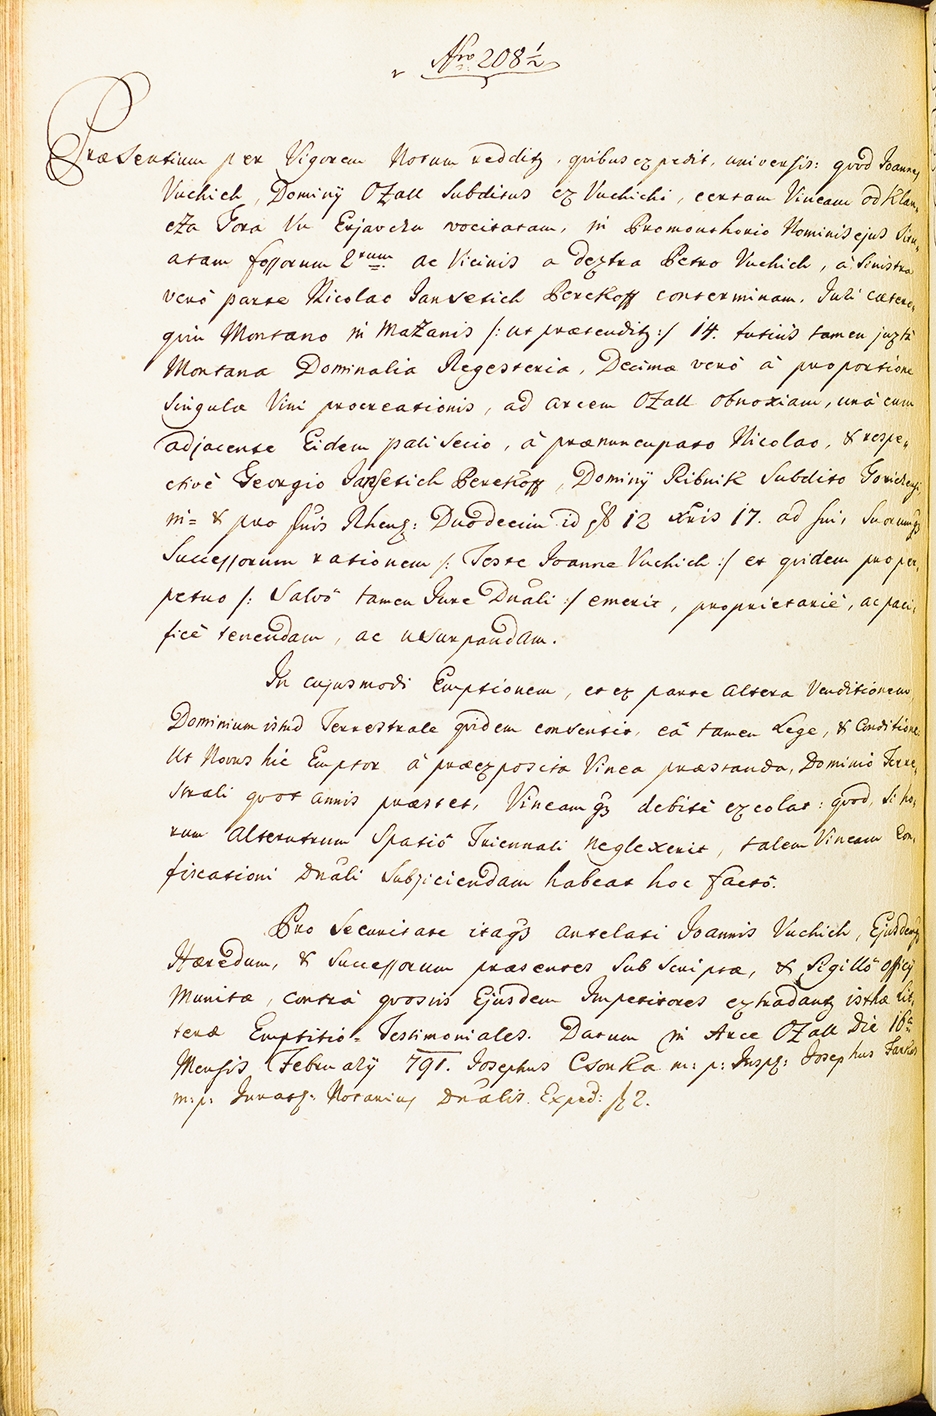 Nro 208½
Præsentium per Vigorem Notum redditq, quibus expedit, universis: quod Joannes
Vuchich, Dominij Ozall Subditus ex Vuchichi, certam Vineam od Klan„
cza Tora Vu Erjavchu vocitatam, in Promonthorio Nominis ejus Situ„
atam fossorum 2rum ac Vicinis a dextra Petro Vuchich, à Sinistra
verò parte Nicolao Jansetich Perekoff conterminam, Juli cætero„
quin Montano in Mazanis /: ut prætenditq :/ 14. tutius tamen juxta
Montana Dominalia Regesteria, Decimæ verò à proportione
Singulæ Vini procreationis, ad Arcem Ozall obnoxiam, unà cum
adjacente Eidem paliSecio, à prænuncupato Nicolao, & respe„
ctivè Georgio Jansetich Perekoff, Dominij Ribnik Subdito
in= & pro flnis Rheng: Duodecim id est 12 xris 17. ad sui, Suorumq
Successorum rationem /: Teste Joanne Vuchich :/ et quidem pro per„
petuo /: Salvô tamen Jure Dnali :/ emerit, proprietariè, ac paci„
ficè tenendam, ac usurpandam.
In cujusmodi Emptionem, et ex parte altera Venditionem
Dominium istud Terrestrale quidem consentit, eâ tamen Lege, & Conditione
Ut Novus hic Emptor à præexposita Vinea præstanda, Dominio Terre„
strali quot annis præstet, Vineamq debitè excolat: quod, si ho„
rum alterutrum Spatiô Triennali neglexerit, talem Vineam Con„
fiscationi Dnali Subjiciendam habeat hoc factô.
Pro Securitate itaq antelati Joannis Vuchich, Ejusdemq
Hæredum, & Successorum præsentes Subscriptæ, & Sigillô Officij
Munitæ, contrà quosvis Ejusdem Impetitores extradantq isthæ Lit„
teræ Emptitio-Testimoniales. Datum in Arce Ozall Die 16ta
Mensis February 791. Josephus Csonka m: p: Inspr: Josephus Farkas
m: p: Juratq: Notarius Dnalis. Exped: fl 2.